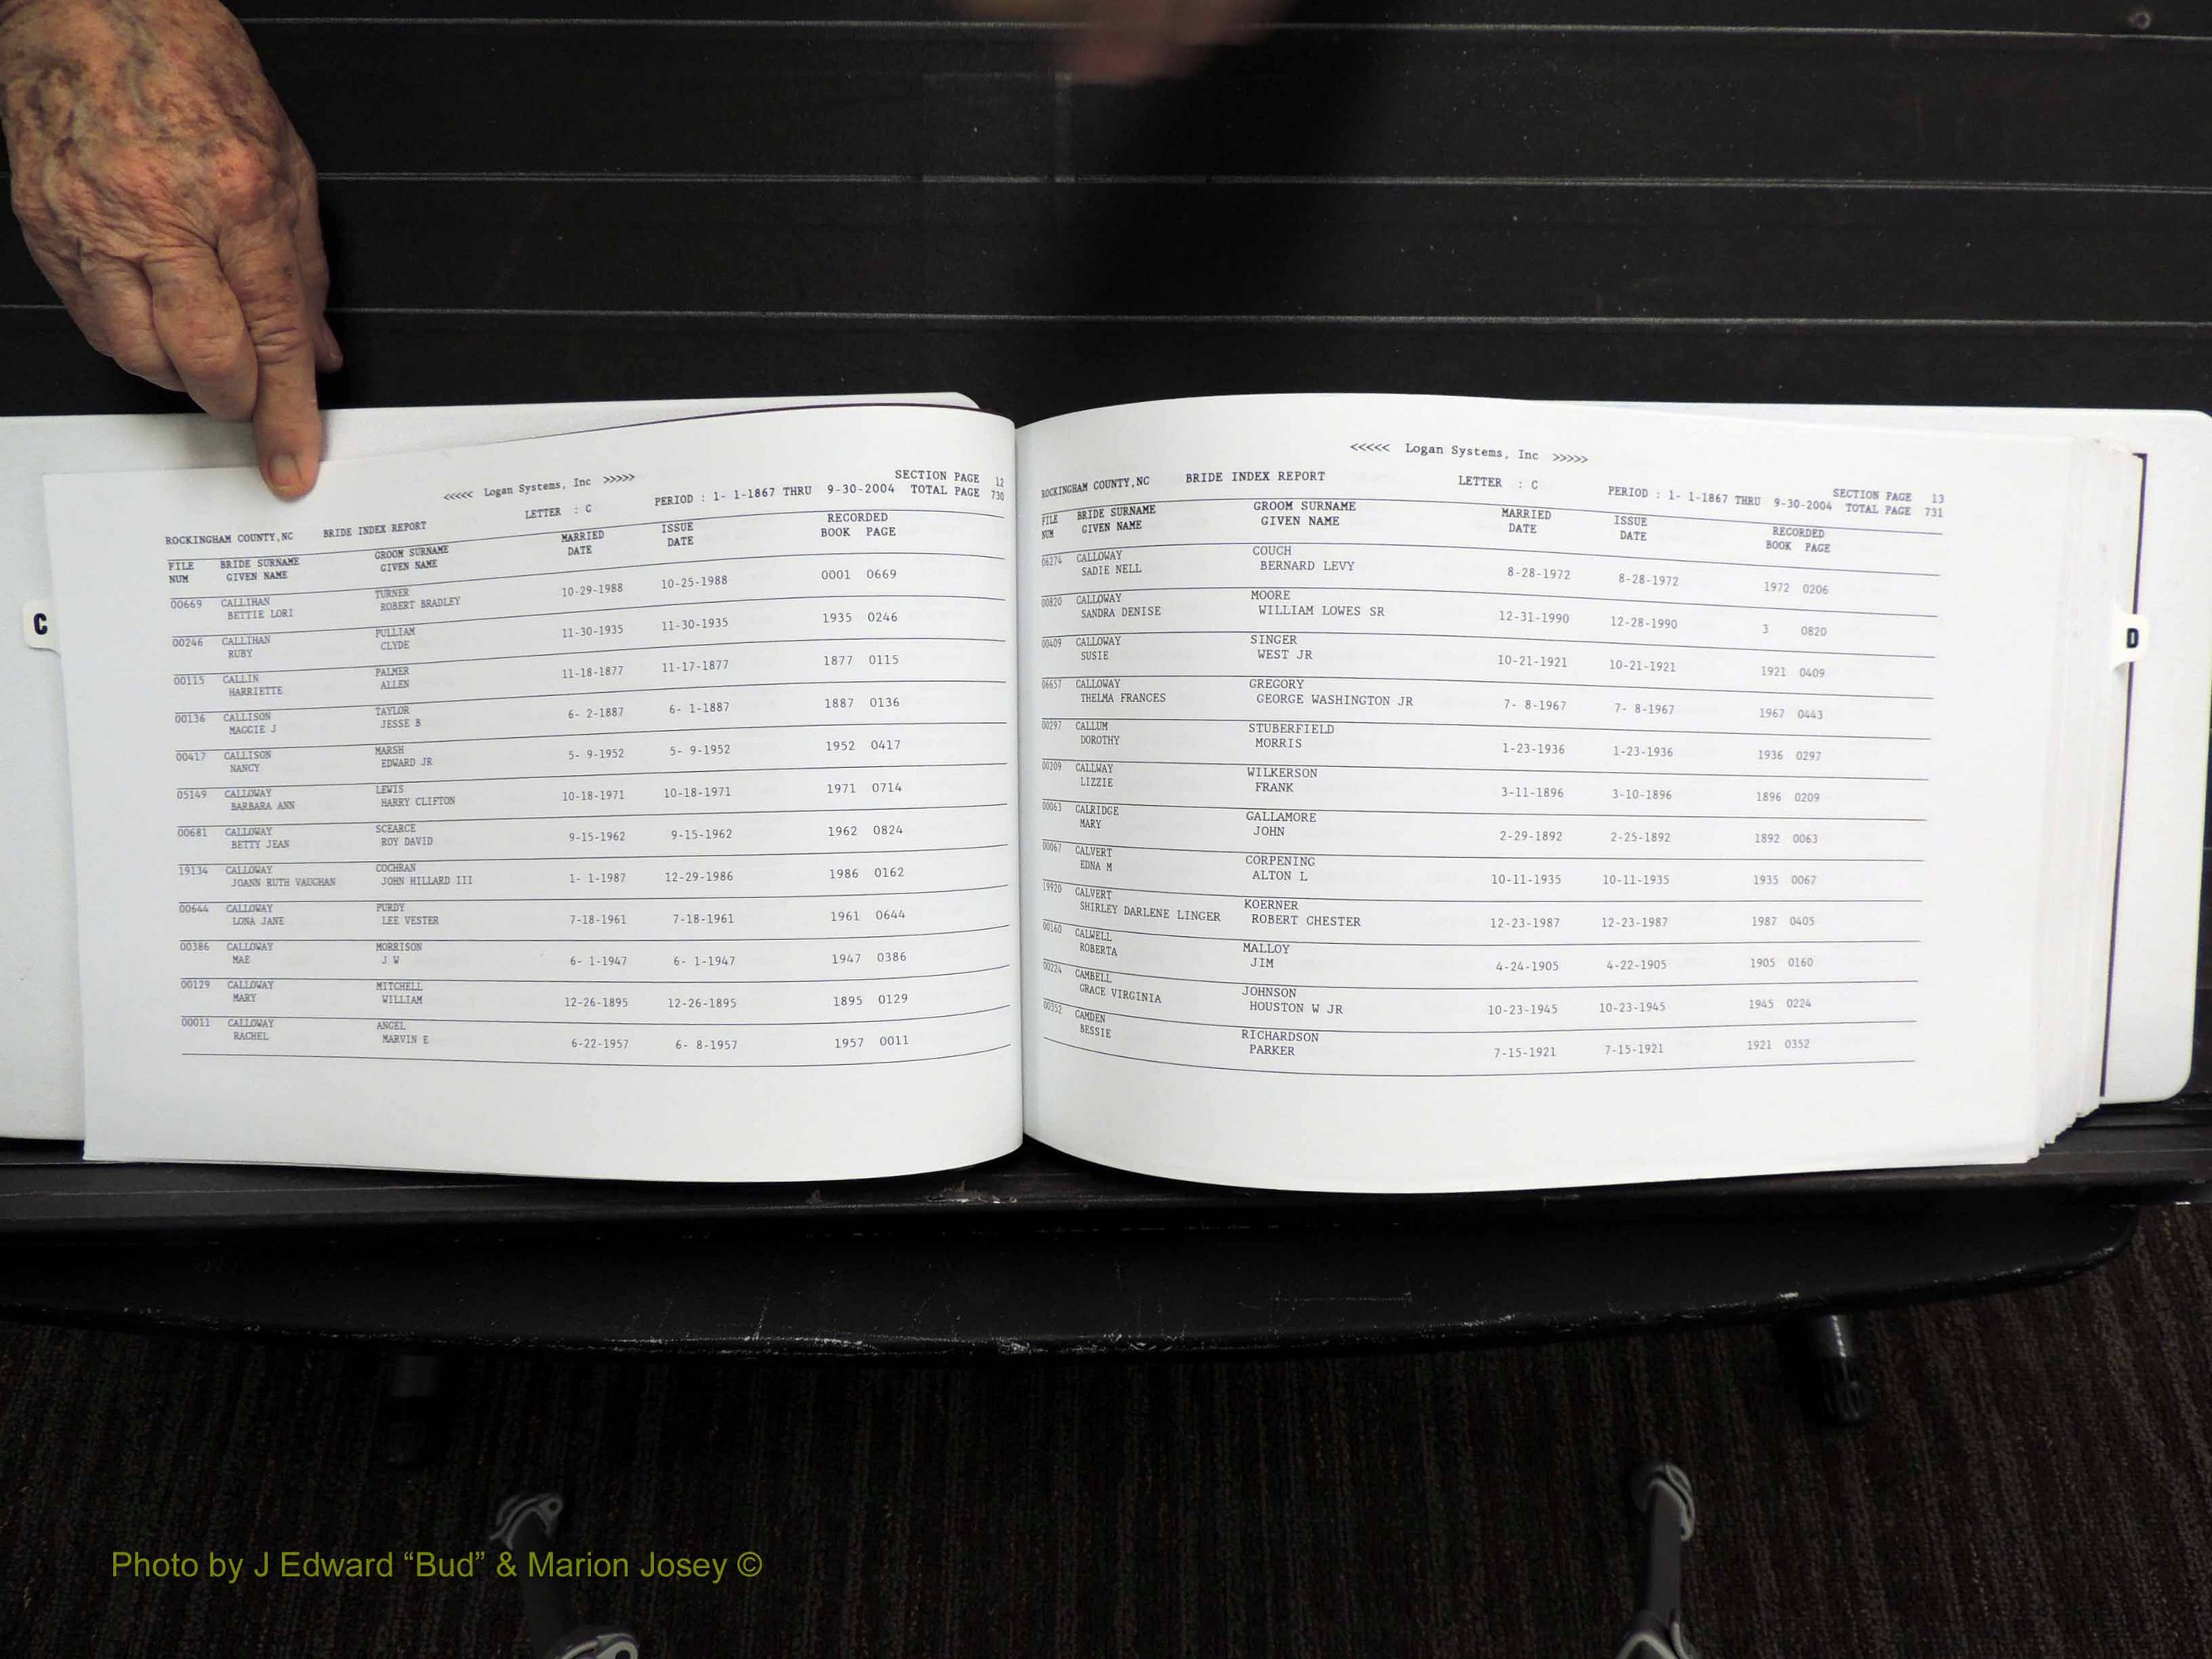 C
<<<<< Logan Systems, Inc >>>>>
SECTION PAGE 12
ROCKINGHAM COUNTY,NC BRIDE INDEX REPORT LETTER : C PERIOD : 1- 1-1867 THRU 9-30-2004 TOTAL PAGE 730
FILE BRIDE SURNAME GROOM SURNAME MARRIED ISSUE RECORDED
NUM GIVEN NAME GIVEN NAME DATE DATE BOOK PAGE
00669 CALLIHAN TURNER 10-29-1988 10-25-1988 0001 0669
BETTIE LORI ROBERT BRADLEY
00246 CALLIHAN PULLIAM 11-30-1935 11-30-1935 1935 0246
RUBY CLYDE
00115 CALLIN PALMER 11-18-1877 11-17-1877 1877 0115
HARRIETTE ALLEN
00136 CALLISON TAYLOR 6- 2-1887 6- 1-1887 1887 0136
MAGGIE J JESSE B
00417 CALLISON MARSH 5- 9-1952 5- 9-1952 1952 0417
NANCY EDWARD JR
05149 CALLOWAY LEWIS 10-18-1971 10-18-1971 1971 0714
BARBARA ANN HARRY CLIFTON
00681 CALLOWAY SCEARCE 9-15-1962 9-15-1962 1962 0824
BETTY JEAN ROY DAVID
19134 CALLOWAY COCHRAN 1- 1-1987 12-29-1986 1986 0162
JOANN RUTH VAUGHAN JOHN HILLARD III
00644 CALLOWAY PURDY 7-18-1961 7-18-1961 1961 0644
LONA JANE LEE VESTER
00386 CALLOWAY MORRISON 6- 1-1947 6- 1-1947 1947 0386
MAE J W
00129 CALLOWAY MITCHELL 12-26-1895 12-26-1895 1895 0129
MARY WILLIAM
00011 CALLOWAY ANGEL 6-22-1957 6- 8-1957 1957 0011
RACHEL MARVIN E
<<<<< Logan Systems, Inc >>>>>
SECTION PAGE 13
ROCKINGHAM COUNTY,NC BRIDE INDEX REPORT LETTER : C PERIOD : 1- 1-1867 THRU 9-30-2004 TOTAL PAGE 731
FILE BRIDE SURNAME GROOM SURNAME MARRIED ISSUE RECORDED
NUM GIVEN NAME GIVEN NAME DATE DATE BOOK PAGE
06274 CALLOWAY COUCH 8-28-1972 8-28-1972 1972 0206
SADIE NELL BERNARD LEVY
00820 CALLOWAY MOORE 12-31-1990 12-28-1990 3 0820
SANDRA DENISE WILLIAM LOWES SR
00409 CALLOWAY SINGER 10-21-1921 10-21-1921 1921 0409
SUSIE WEST JR
06657 CALLOWAY GREGORY 7- 8-1967 7- 8-1967 1967 0443
THELMA FRANCES GEORGE WASHINGTON JR
00297 CALLUM STUBERFIELD 1-23-1936 1-23-1936 1936 0297
DOROTHY MORRIS
00209 CALLWAY WILKERSON 3-11-1896 3-10-1896 1896 0209
LIZZIE FRANK
00063 CALRIDGE GALLAMORE 2-29-1892 2-25-1892 1892 0063
MARY JOHN
00067 CALVERT CORPENING 10-11-1935 10-11-1935 1935 0067
EDNA M ALTON L
19920 CALVERT KOERNER 12-23-1987 12-23-1987 1987 0405
SHIRLEY DARLENE LINGER ROBERT CHESTER
00160 CALWELL MALLOY 4-24-1905 4-22-1905 1905 0160
ROBERTA JIM
00224 CAMBELL JOHNSON 10-23-1945 10-23-1945 1945 0224
GRACE VIRGINIA HOUSTON W JR
00352 CAMDEN RICHARDSON 7-15-1921 7-15-1921 1921 0352
BESSIE PARKER
D
Photo by J Edward “Bud” & Marion Josey ©